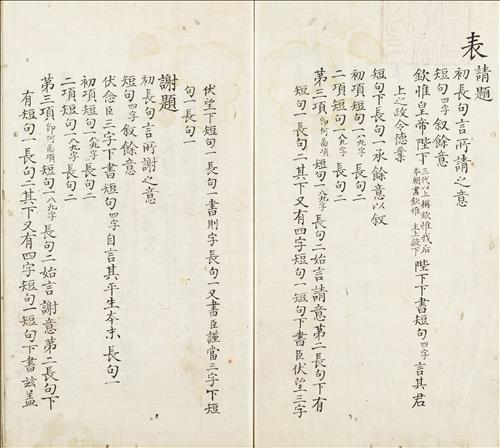 表
請題
初長句言所請之意
短句四字叙餘意
欽惟皇帝陛下三代以上稱欽惟我后本朝書欽惟主上殿下陛下下書短句四字言其君
上之政令德業
短句下長句一承餘意以叙
初項短句一八九字長句二
二項短句一八九字長句二
第三項即何啚項短句一八九字長句二始言請意第二長句下有
短句一長句二其下又有四字短句一短句下書臣伏望三字
伏望下短句一長句一書則字長句一又書臣謹當三字下短
句一長句一
謝題
初長句言所謝之意
短句四字叙餘意
伏念臣三字下書短句四字自言其平生本末長句一
初項短句一八九字長句二
二項短句一八九字長句二
第三項即何啚項短句一八九字長句二始言謝意第二長句下
有短句一長句二其下又有四字短句一短句下書玆盖